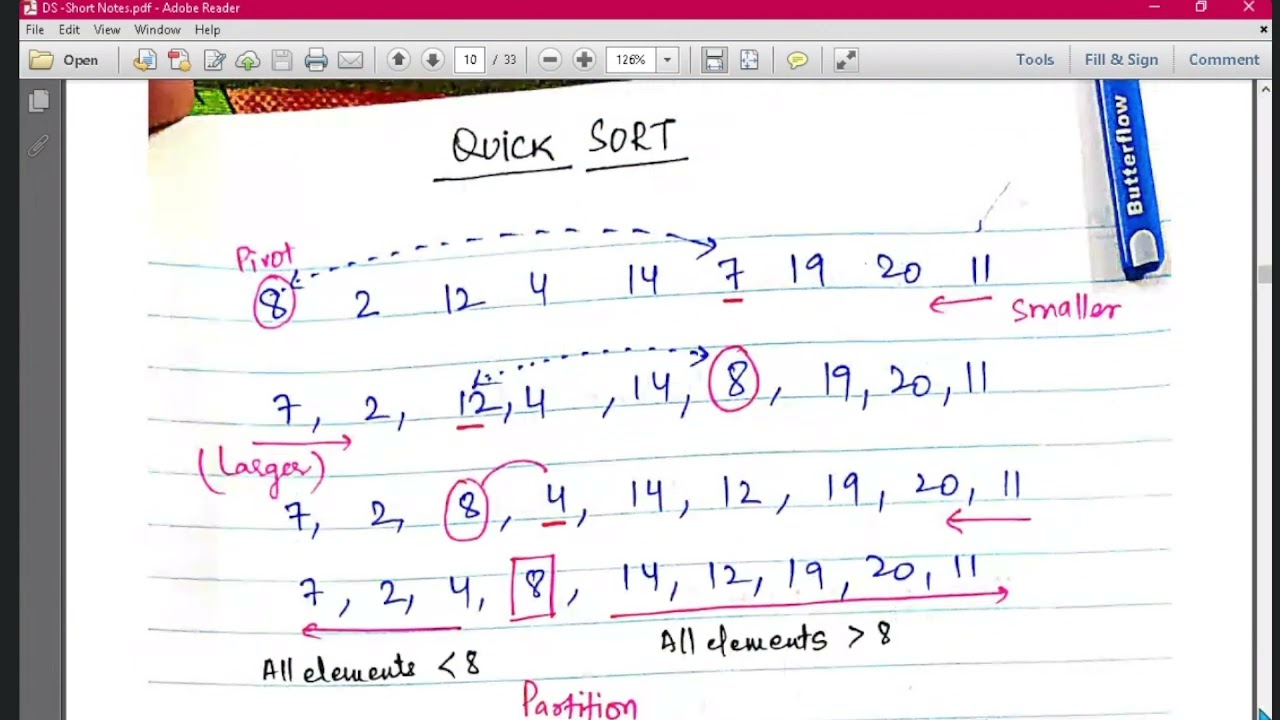 DS -Short Notes.pdf - Adobe Reader
File Edit View Window Help
Open 10 / 33 126% Tools Fill & Sign Comment
QUICK SORT
Butterflow
Pivot
8 2 12 4 14 7 19 20 11
Smaller
7, 2, 12, 4 , 14, 8, 19, 20, 11
(Larger)
7, 2, 8, 4, 14, 12, 19, 20, 11
7, 2, 4, 8, 14, 12, 19, 20, 11
All elements < 8 All elements > 8
Partition